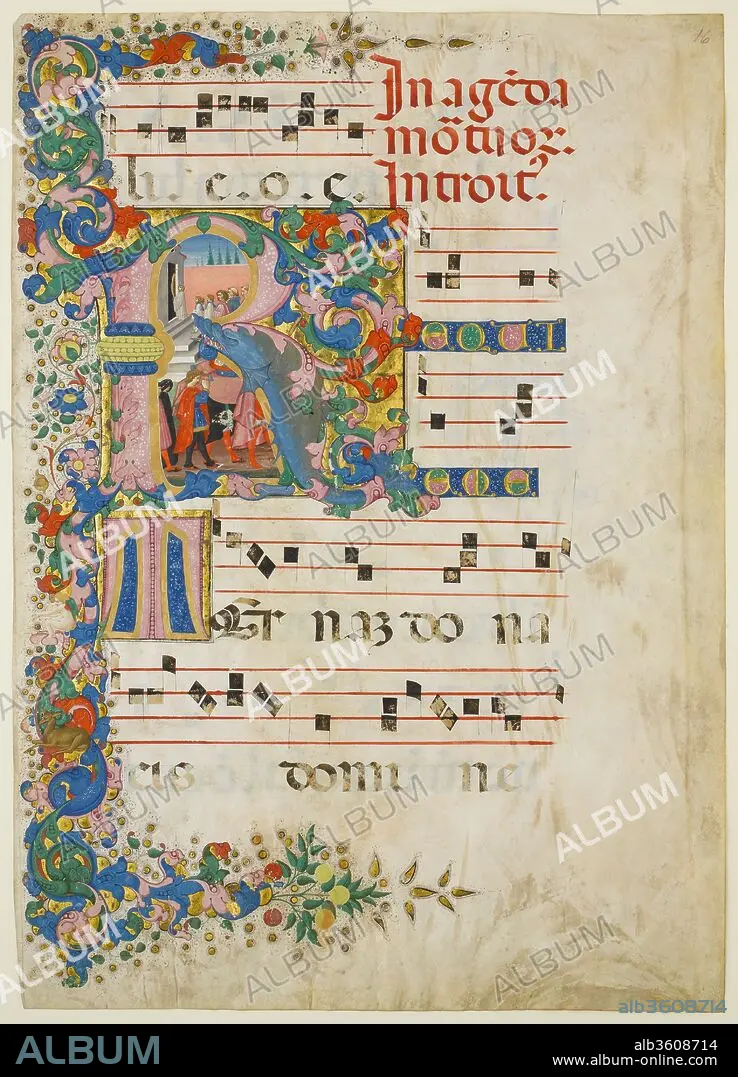 16
In agēda
mōtuoꝝ.
Introit'.
R EQUI
EM E
T ER naz do na
eis domine
ALBUM
alb3608714
ALBUM
alb3608714
www.album-online.com